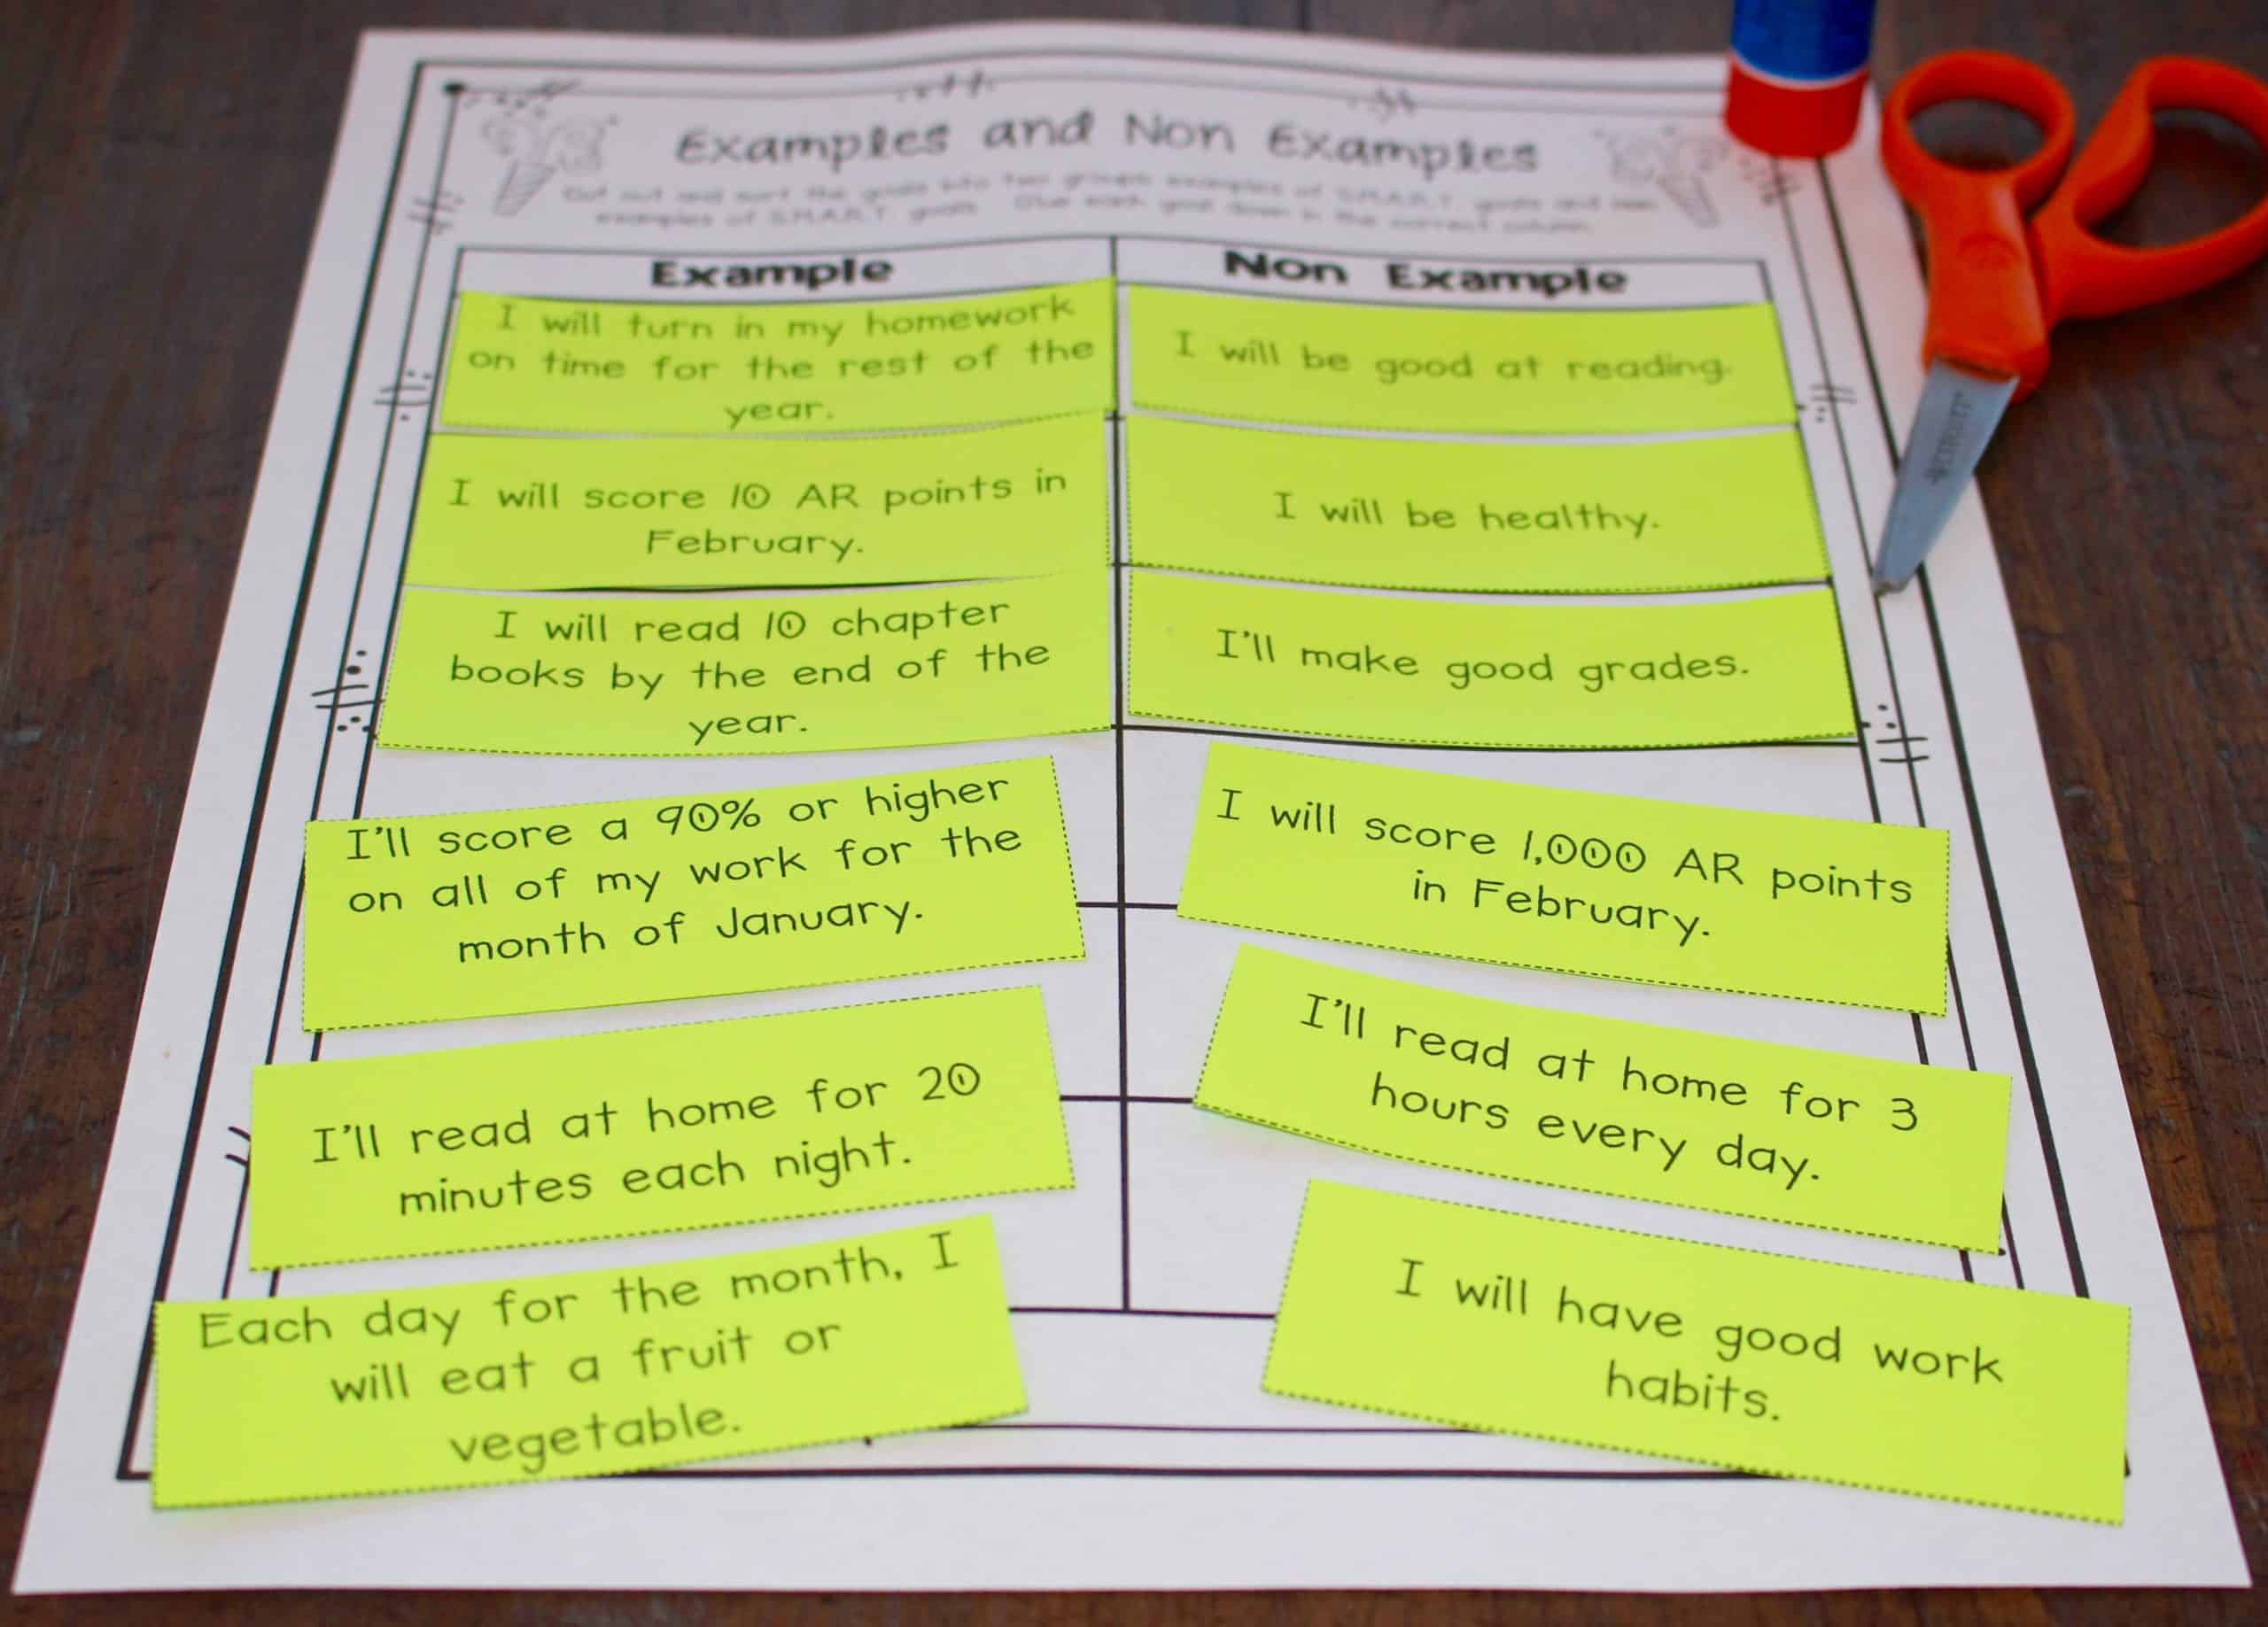 Examples and Non Examples
Cut out and sort the goals into two groups: examples of S.M.A.R.T. goals and non
examples of S.M.A.R.T. goals. Glue each goal down in the correct column.
Example
Non Example
I will turn in my homework
on time for the rest of the
year.
I will be good at reading.
I will score 10 AR points in
February.
I will be healthy.
I will read 10 chapter
books by the end of the
year.
I'll make good grades.
I'll score a 90% or higher
on all of my work for the
month of January.
I will score 1,000 AR points
in February.
I'll read at home for 20
minutes each night.
I'll read at home for 3
hours every day.
Each day for the month, I
will eat a fruit or
vegetable.
I will have good work
habits.